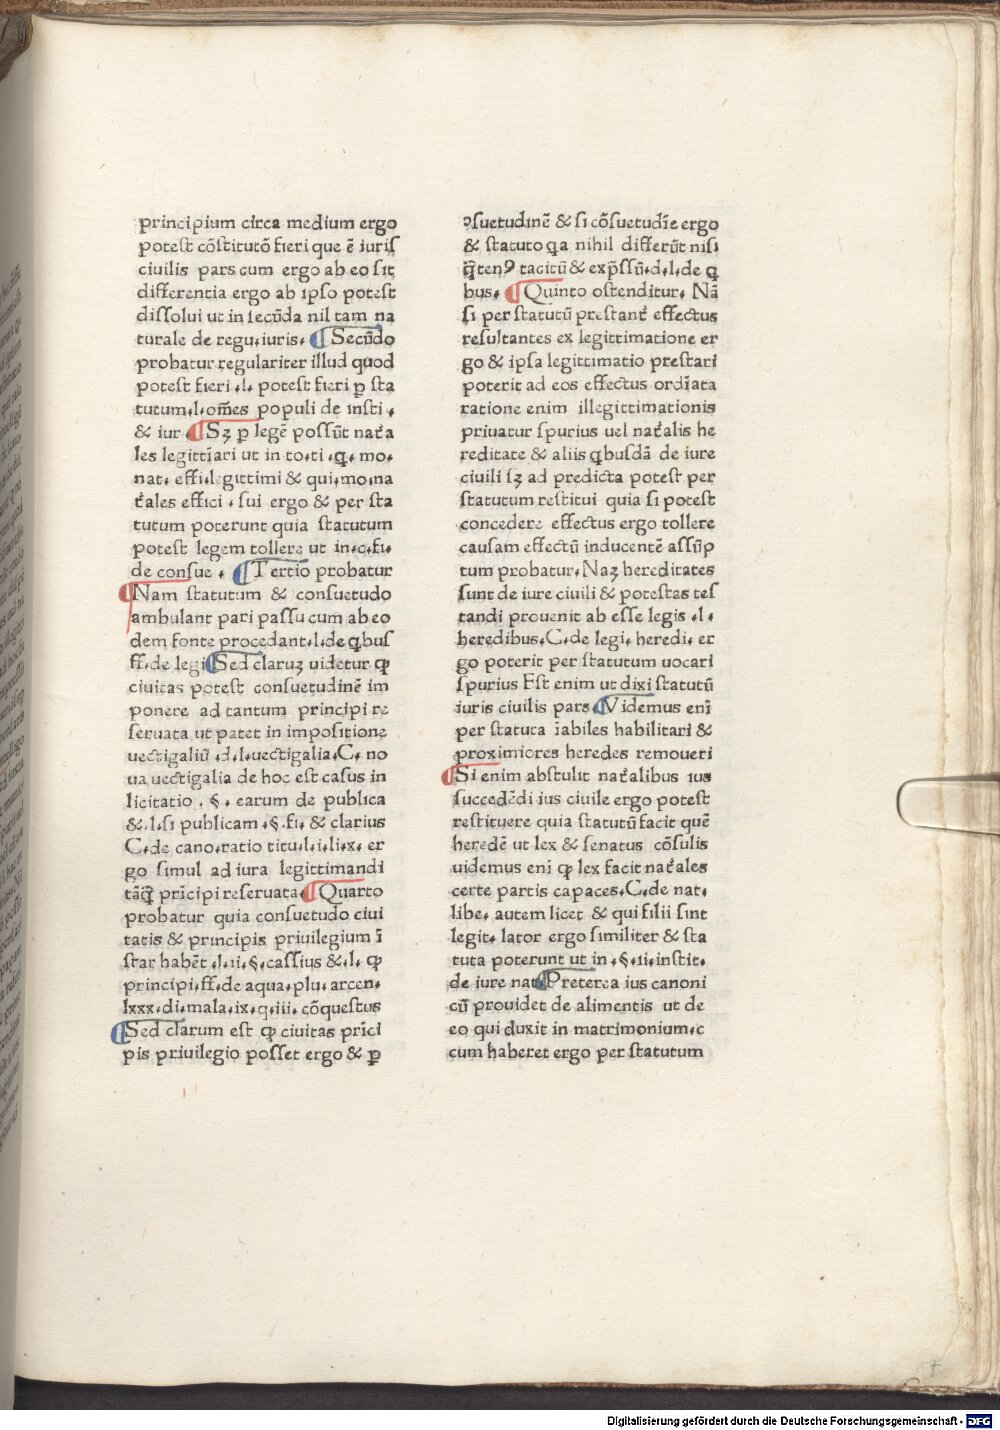 principium circa medium ergo
poteſt cõſtitutõ fieri que ẽ iuriſ
ciuilis pars cum ergo ab eo ſit
differentia ergo ab ipſo poteſt
diſſolui ut in ſecũda nil tam na
turale de regu.iuris. ¶ Secũdo
probatur regulariter illud quod
poteſt fieri .l. poteſt fieri ꝑ ſta
tutum.l.om̃es populi de inſti .
& iur . ¶ Sꝫ ꝑ legẽ poſſũt nat̃a
les legittĩari ut in to.ti .q. mo.
nat. effi.legittimi & qui.mo.na
t̃ales effici . ſui ergo & per ſta
tutum poterunt quia ſtatutum
poteſt legem tollere ut in.c.fi.
de conſue . ¶ Tertio probatur
¶ Nam ſtatutum & conſuetudo
ambulant pari paſſu cum ab eo
dem fonte procedant.l.de ꝗbuſ
ff.de legi ¶ Sed claruꝫ uidetur ꝙ
ciuitas poteſt conſuetudinẽ im
ponere ad tantum principi re
ſeruata ut patet in impoſitione
uectigaliũ .d.l.uectigalia.C. no
ua uectigalia de hoc eſt caſus in
licitatio . §. earum de publica
&.l.ſi publicam .§.fi. & clarius
C.de cano.ratio titu.l.i.li.x. er
go ſimul ad iura legittimandi
tãq̃ prĩcipi reſeruata. ¶ Quarto
probatur quia conſuetudo ciui
tatis & principis priuilegium ĩ
ſtar habẽt .l.ii.§.caſſius &.l. ꝙ
principi.ff.de aqua.plu.arcen.
lxxx.di.mala.ix.q.iii. cõqueſtus
¶ Sed clarum eſt ꝙ ciuitas prĩci
pis priuilegio poſſet ergo & ꝑ
ꝯſuetudinẽ & ſi cõſuetudĩe ergo
& ſtatuto q̃a nihil differũt niſi
q̃tenꝯ tacitũ & exp̃ſſũ.d.l.de ꝗ
bus. ¶ Quinto oſtenditur. Nã
ſi per ſtatutũ preſtant̃ effectus
reſultantes ex legittimatione er
go & ipſa legittimatio preſtari
poterit ad eos effectus ordĩata
ratione enim illegittimationis
priuatur ſpurius uel nat̃alis he
reditate & aliis ꝗbuſdã de iure
ciuili ſꝫ ad predicta poteſt per
ſtatutum reſtitui quia ſi poteſt
concedere effectus ergo tollere
cauſam effectũ inducentẽ aſſũp
tum probatur. Naꝫ hereditates
ſunt de iure ciuili & poteſtas teſ
tandi prouenit ab eſſe legis .l.
heredibus.C.de legi. heredi. er
go poterit per ſtatutum uocari
ſpurius Eſt enim ut dixi ſtatutũ
iuris ciuilis pars ¶ Videmus enĩ
per ſtatuta ĩabiles habilitari &
proximiores heredes remoueri
¶ Si enim abſtulit nat̃alibus ius
ſuccedẽdi ius ciuile ergo poteſt
reſtituere quia ſtatutũ facit quẽ
heredẽ ut lex & ſenatus cõſulis
uidemus enĩ ꝙ lex facit nat̃ales
certe partis capaces.C.de nat.
libe. autem licet & qui filii ſint
legit. lator ergo ſimiliter & ſta
tuta poterunt ut in .§.ii.inſtit.
de iure nat ¶ Preterea ius canoni
cũ prouidet de alimentis ut de
eo qui duxit in matrimonium.c
cum haberet ergo per ſtatutum
Digitalisierung gefördert durch die Deutsche Forschungsgemeinschaft - DFG